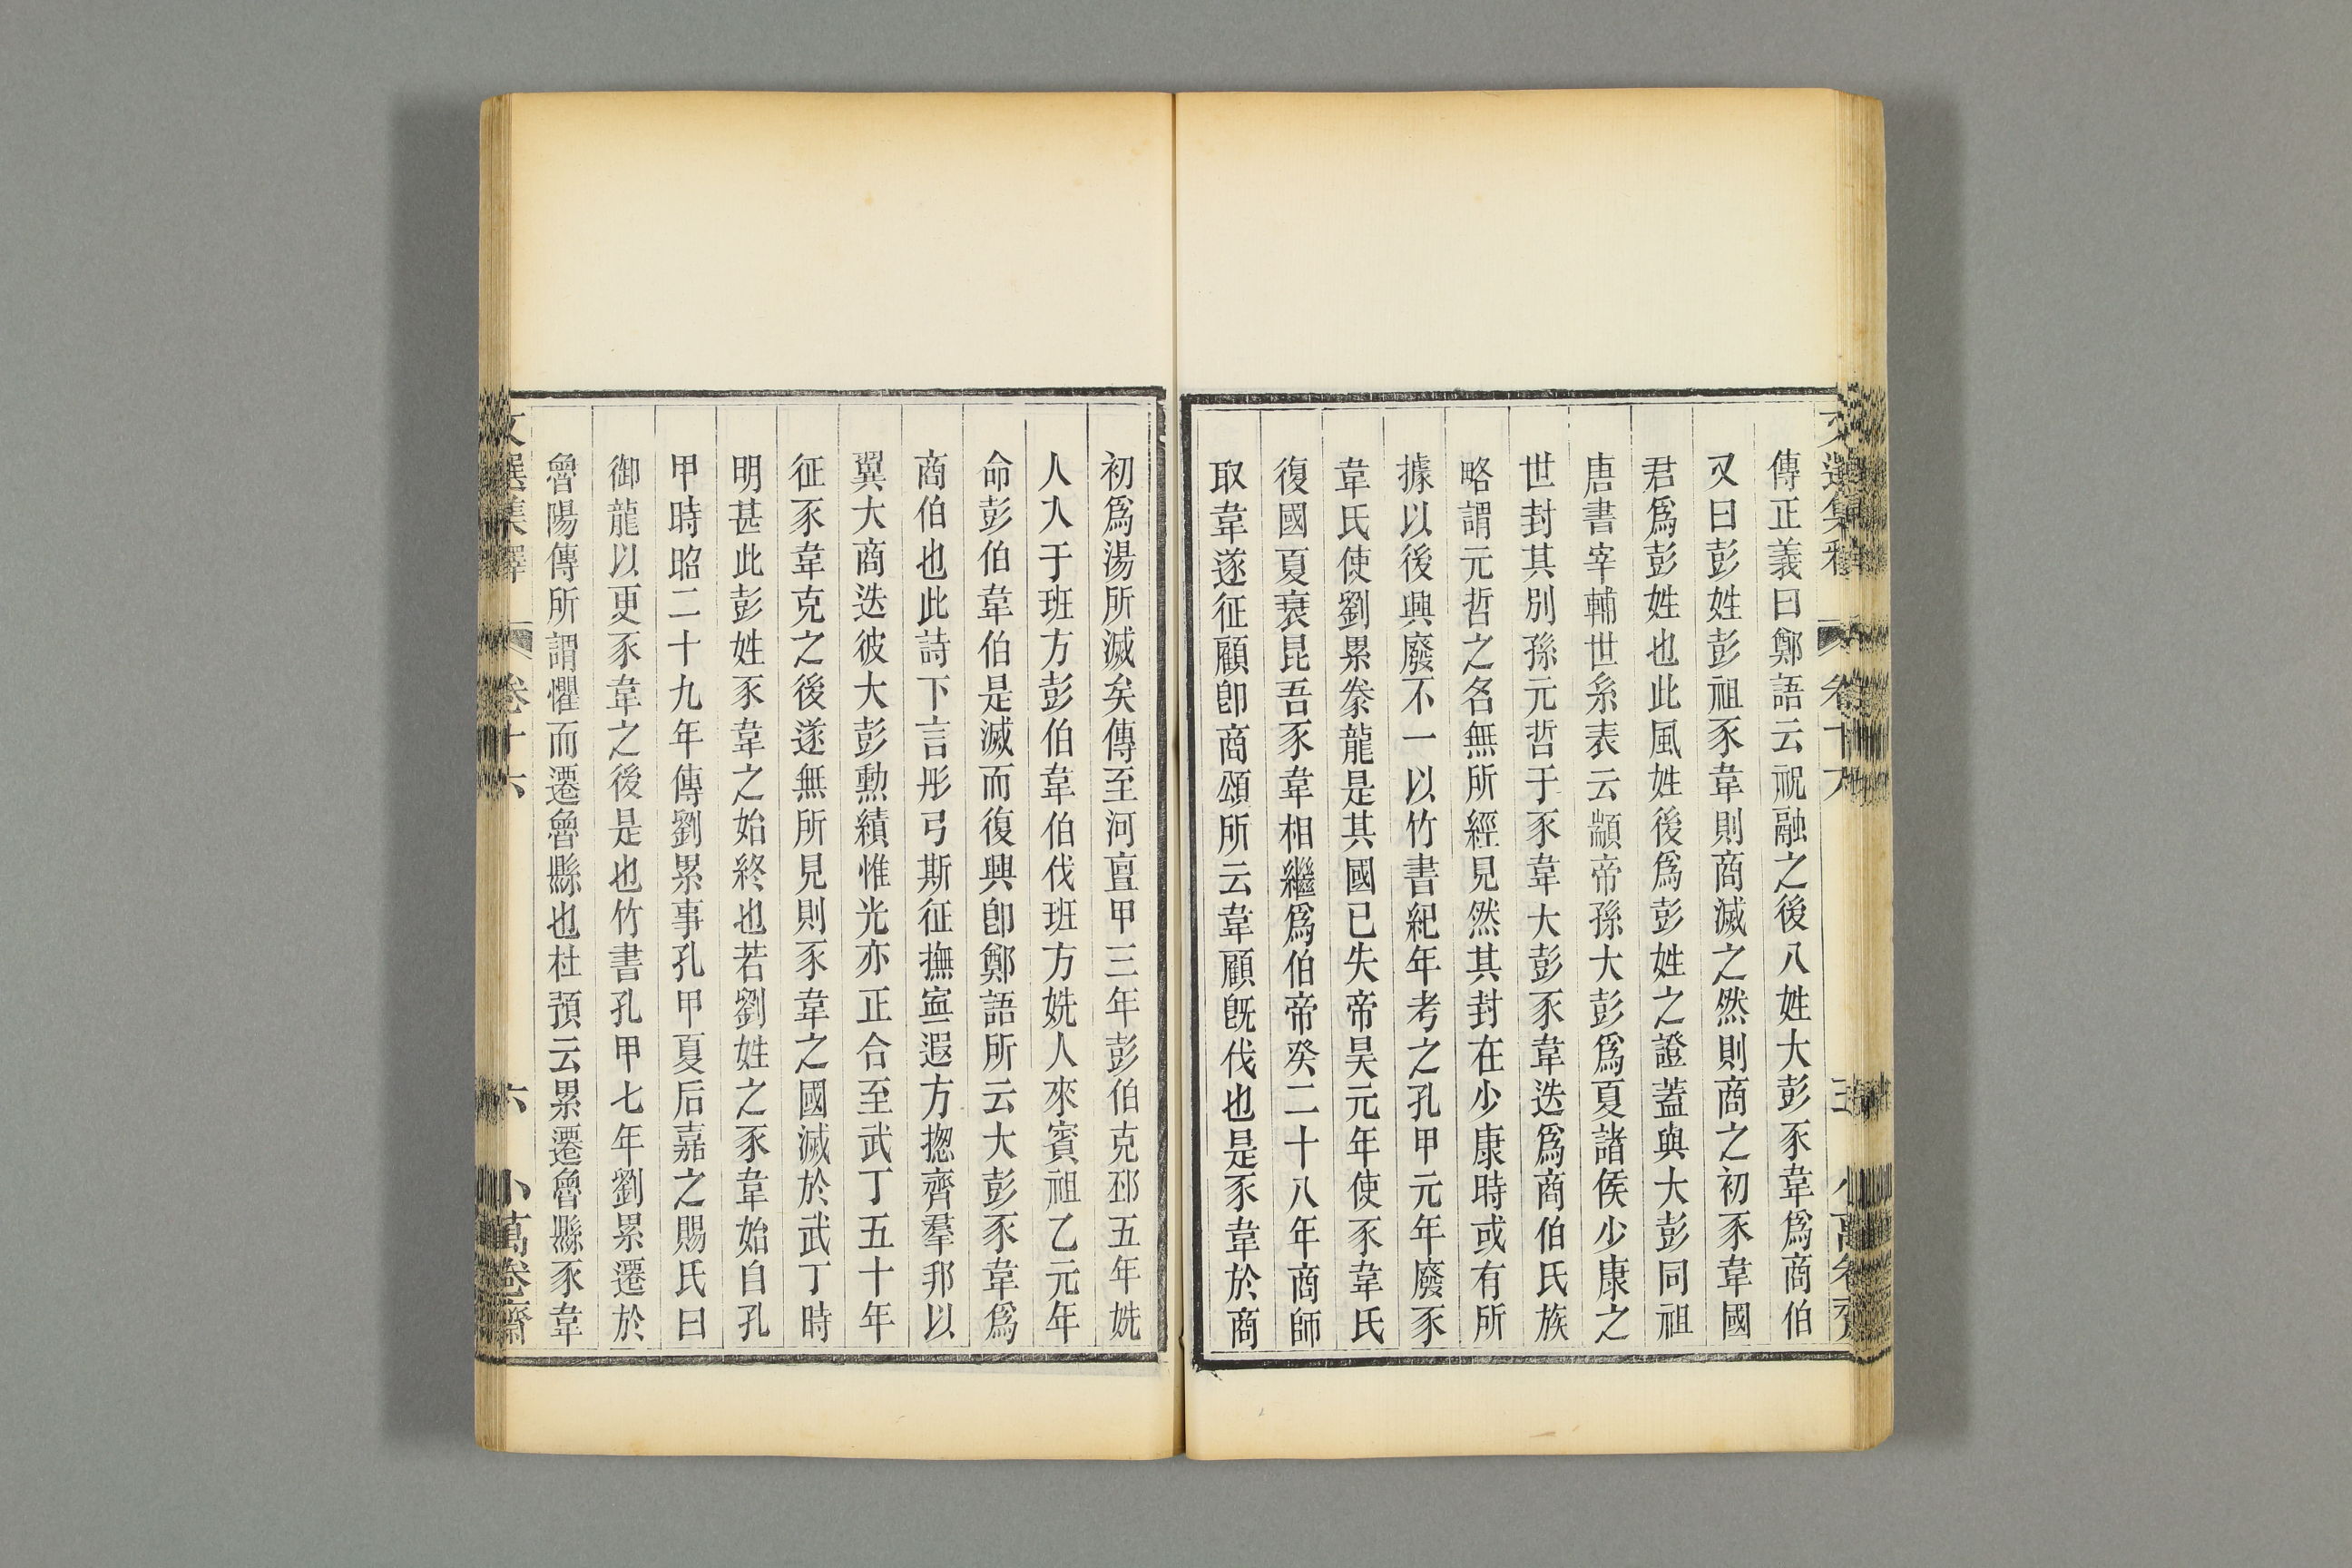 傳正義曰鄭語云祝融之後八姓大彭豕韋爲商伯
又曰彭姓彭祖豕韋則商滅之然則商之初豕韋國
君爲彭姓也此風姓後爲彭姓之證蓋與大彭同祖
唐書宰輔世系表云顓帝孫大彭爲夏諸侯少康之
世封其別孫元哲于豕韋大彭豕韋迭爲商伯氏族
略謂元哲之名無所經見然其封在少康時或有所
據以後興廢不一以竹書紀年考之孔甲元年廢豕
韋氏使劉累豢龍是其國已失帝昊元年使豕韋氏
復國夏衰昆吾豕韋相繼爲伯帝癸二十八年商師
取韋遂征顧卽商頌所云韋顧旣伐也是豕韋於商
初爲湯所滅矣傳至河亶甲三年彭伯克邳五年姺
人入于班方彭伯韋伯伐班方姺人來賓祖乙元年
命彭伯韋伯是滅而復興卽鄭語所云大彭豕韋爲
商伯也此詩下言彤弓斯征撫寍遐方揔齊羣邦以
翼大商迭彼大彭勲績惟光亦正合至武丁五十年
征豕韋克之後遂無所見則豕韋之國滅於武丁時
明甚此彭姓豕韋之始終也若劉姓之豕韋始自孔
甲時昭二十九年傳劉累事孔甲夏后嘉之賜氏曰
御龍以更豕韋之後是也竹書孔甲七年劉累遷於
魯陽傳所謂懼而遷魯縣也杜預云累遷魯縣豕韋
文選集釋 卷十六 六 小萬卷齋